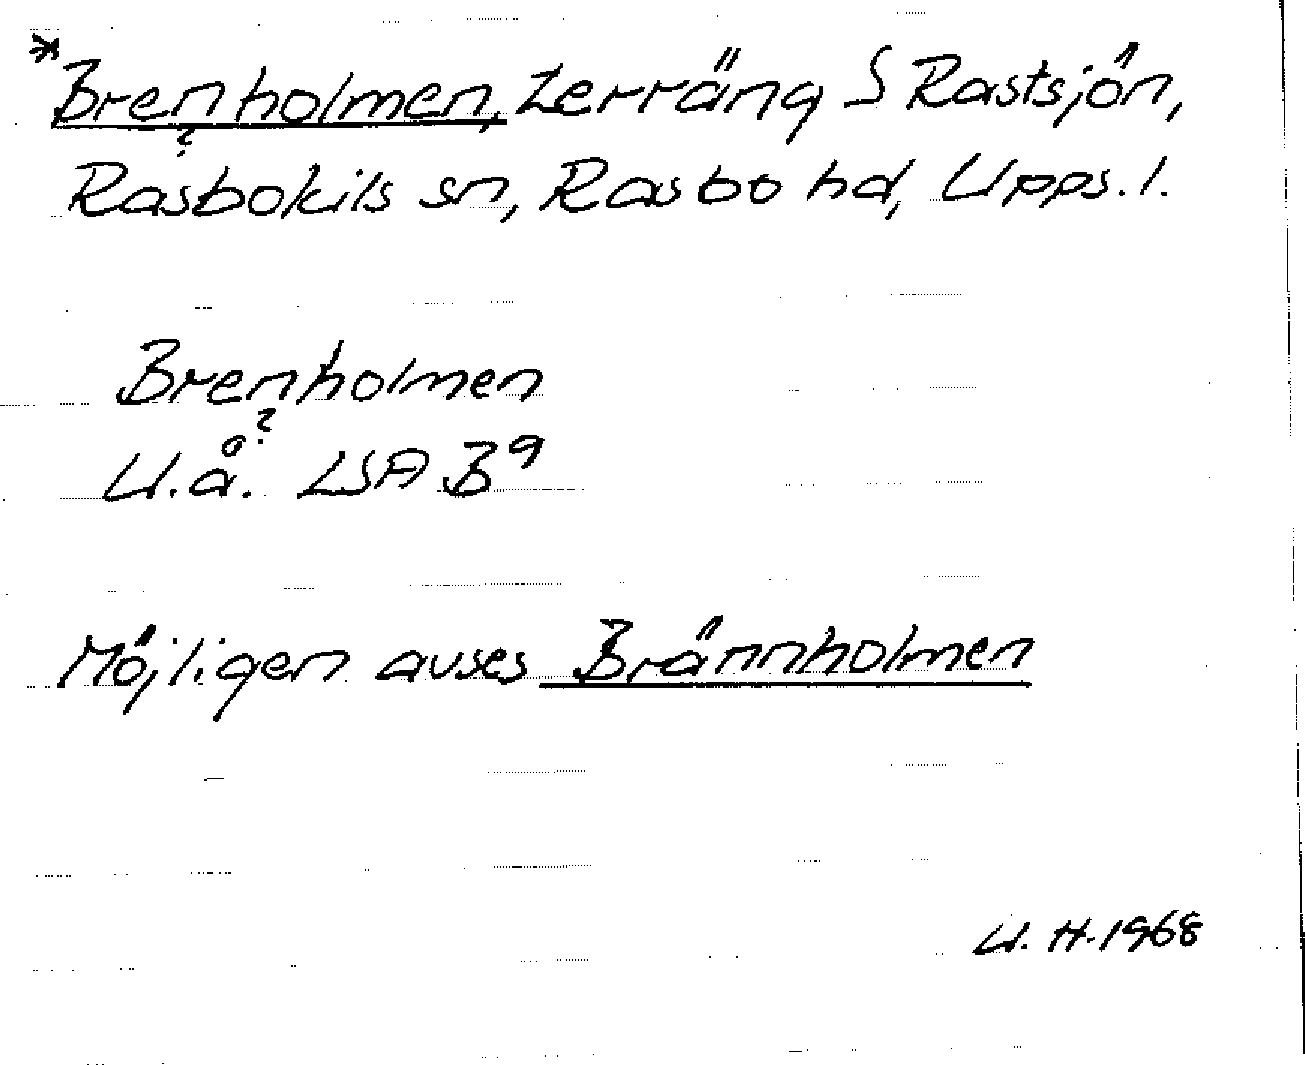 *Brenholmen, terräng S Rastsjön,
?
Rasbokils sn, Rasbo hd, Upps. l.
Brenholmen
?
U.å. LSA B9
Möjligen avses Brännholmen
U. H. 1968